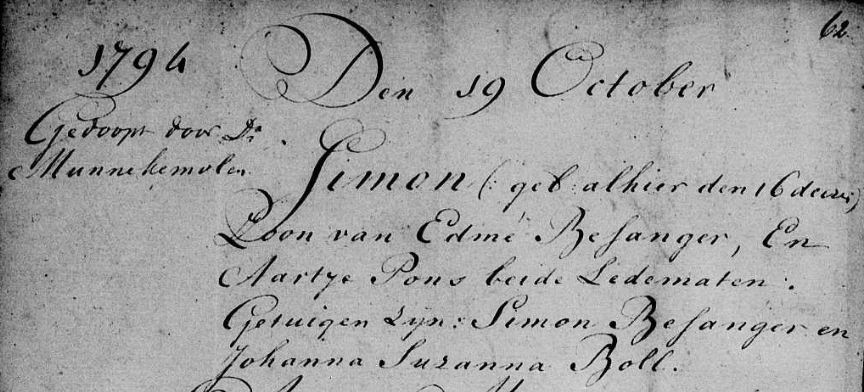 62
1794 Den 19 October
Gedoopt door Ds.
Munnekemolen
Simon (: geb: alhier den 16 deezer)
Zoon van Edmé Besanger, En
Aartje Pons beide Ledematen.
Getuigen zyn: Simon Besanger en
Johanna Suzanna Boll.